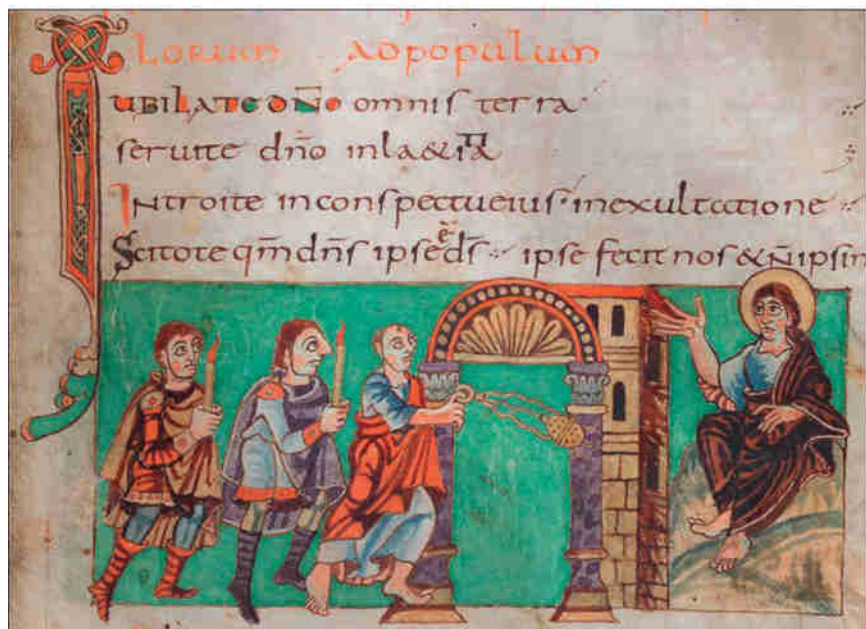 LORUM ADPOPULUM
IUBILATE DÑO omnis terra
seruite dño inla&itia
Introite inconspectueius· inexultatione
Scitote qm̄ dn̄s ipse ē ds̄ ipse fecit nos &n̄ipsin